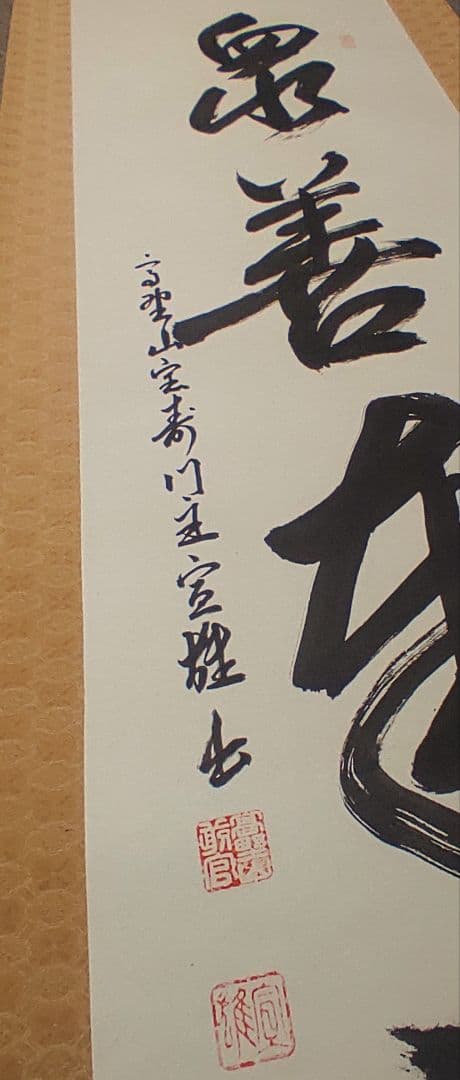 衆善
高野山宝寿門主宣雄書
宣雄